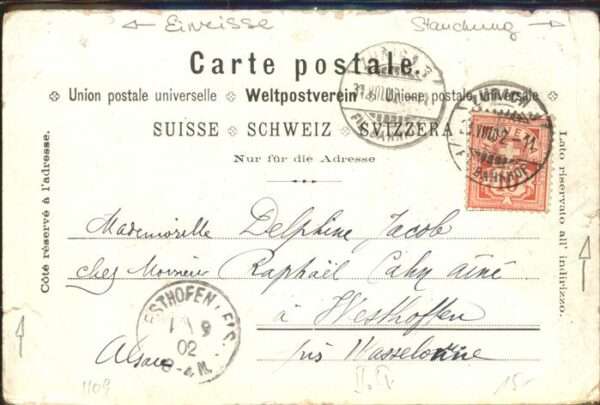 Einrisse
Stauchung
Carte postale.
Union postale universelle Weltpostverein Unione postale universale
SUISSE SCHWEIZ SVIZZERA
Nur für die Adresse
Côté réservé à l'adresse.
Lato riservato all' indirizzo.
ZÜRICH
31.VIII.02
BAHNHOF
Mademoiselle Delphine Jacob
chez Monsieur Raphaël Cahn aîné
à Westhoffen
près Wasselonne
Alsace
WESTHOFEN
1 9
02
1109
15.-